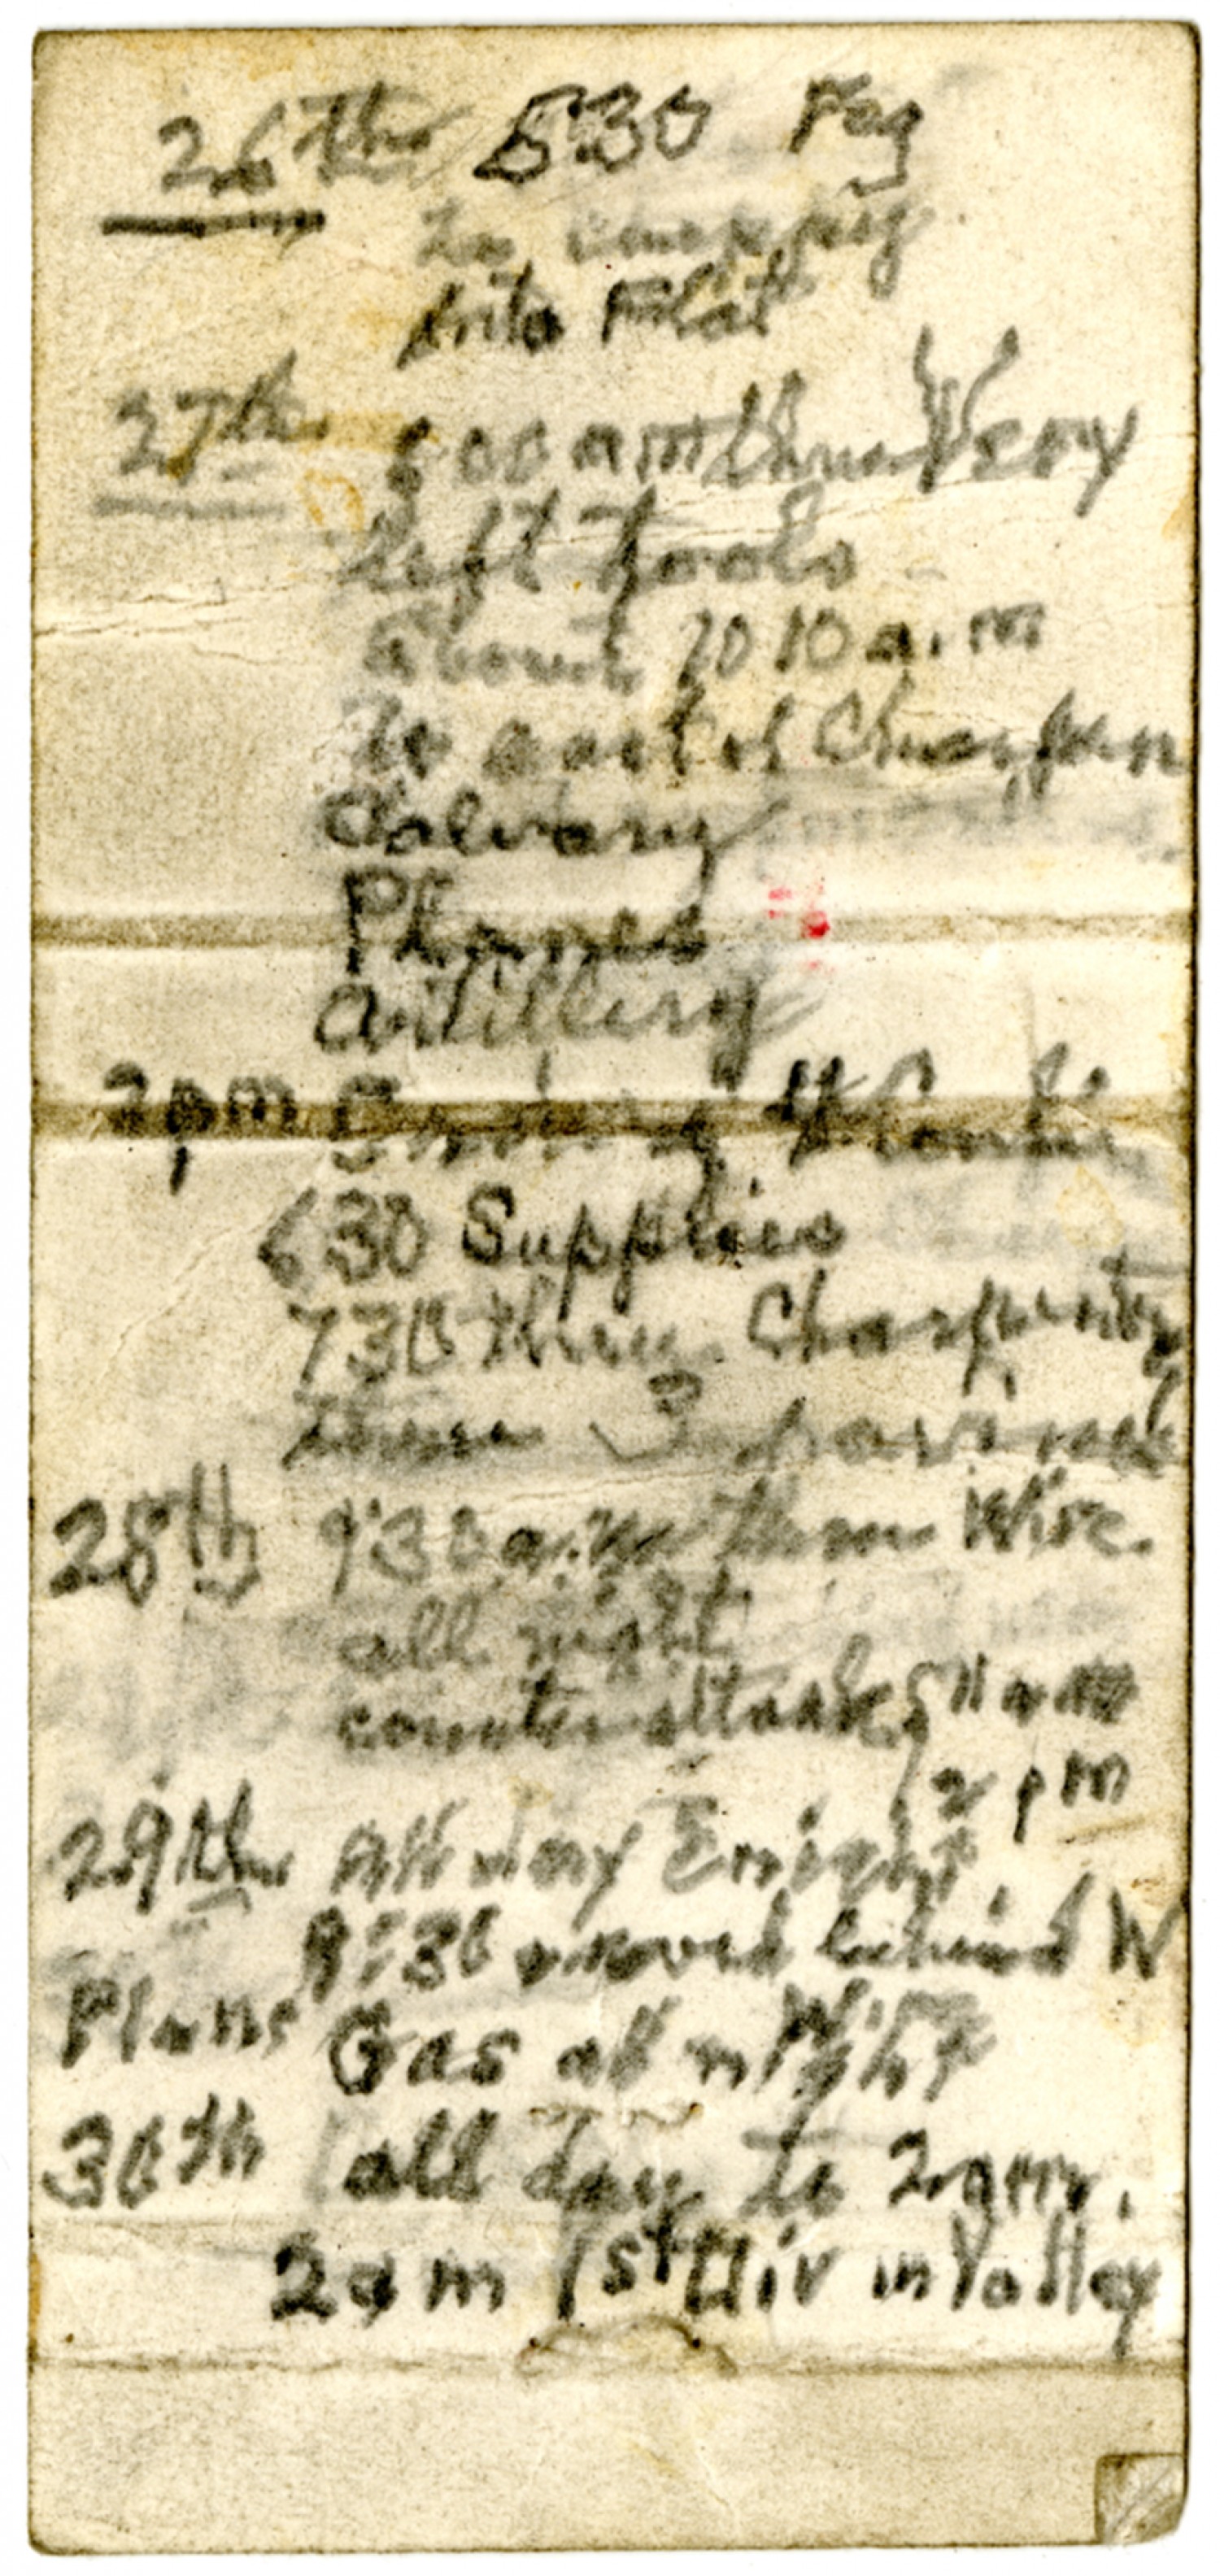 26th 530 Fog
in
into Flat
27th 8 00 am thru Very
left tanks
about 10 10 a.m
to east of
Calvary
Planes
Artillery
2pm
630 Supplies
730 thru Charpentry
28th 930 a.m thru Wire
all night
counter attacks 11 am
2 pm
29th All day & night
8:30 moved behind W
Planes Wire
Gas all night
30th all day to 2 am.
2 am 1st Div in Valley